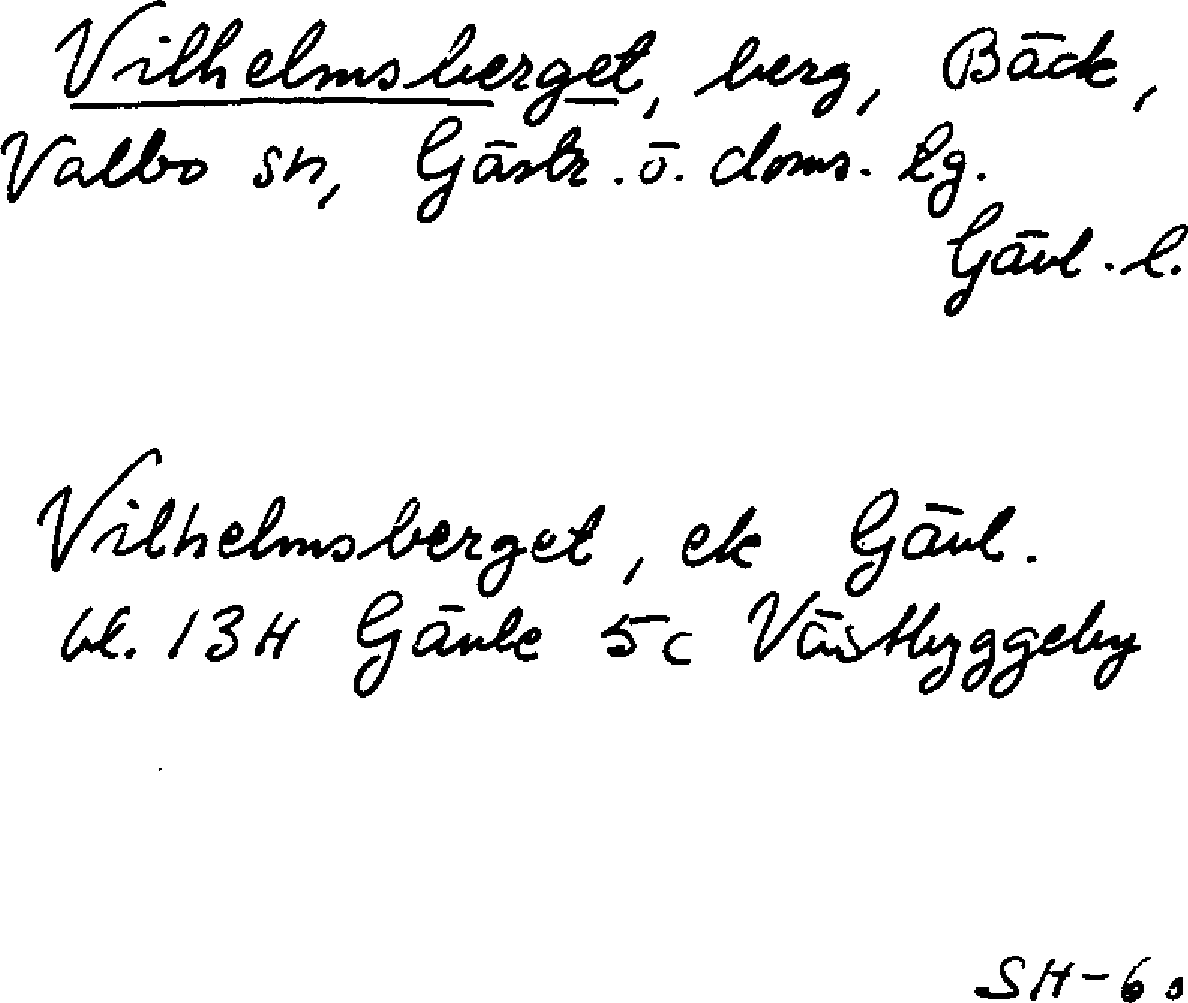 Vilhelmsberget, berg, Bäck,
Valbo sn, Gästr. ö. doms. lg.
Gävl. l.
Vilhelmsberget, ek Gävl.
bl. 13H Gävle 5c Västbyggeby
SH-60